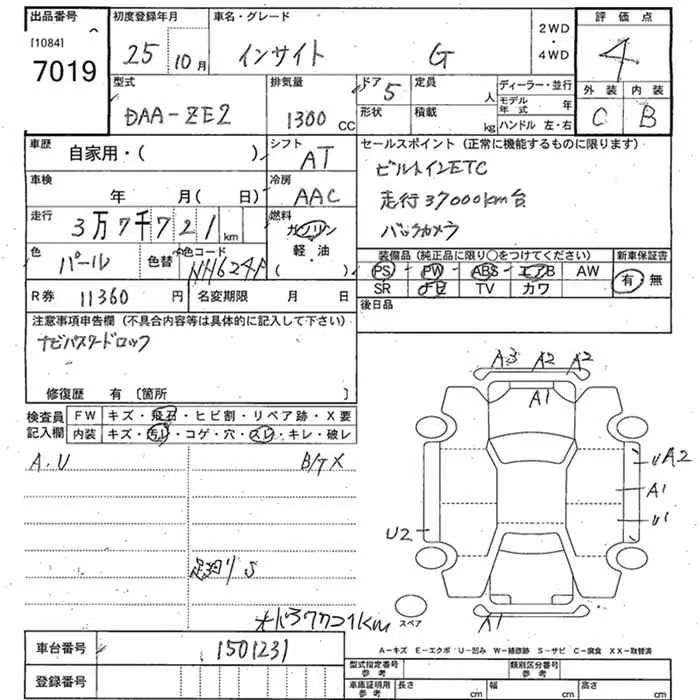 出品番号
[1084]
7019
初度登録年月
25 10月
車名・グレード
インサイト G
2WD
・
4WD
評価点
4
外装 内装
C B
型式
DAA-ZE2
排気量
1300 CC
ドア 5
形状
定員 人
積載 kg
ディーラー・並行
モデル年式 年
ハンドル 左・右
車歴
自家用・( )
シフト
AT
車検
年 月( 日)
冷房
AAC
走行
3万7千721km
燃料
ガソリン
軽・油
( )
色
パール
色替
色コード
NH624P
R券 11360円
名変期限 月 日
セールスポイント(正常に機能するものに限ります)
ビルトインETC
走行37000km台
バックカメラ
装備品(純正品に限り○をつけてください)
新車保証書
PS・PW・ABS・エアB AW
SR ナビ TV カワ
有・無
後日品
注意事項申告欄(不具合内容等は具体的に記入して下さい)
ナビパスワードロック
修復歴 有〔箇所 〕
検査員
記入欄
FW キズ・飛石・ヒビ割・リペア跡・X要
内装 キズ・汚レ・コゲ・穴・スレ・キレ・破レ
A.U
B/TX
足廻りS
オド37721km
A3 A2 A2
A1
UA2
A1
U1
U2
A1
スペア
A-キズ E-エクボ U-凹み W-補修跡 S-サビ C-腐食 XX-取替済
車台番号
1501231
登録番号
型式指定番号
参考
類別区分番号
参考
車庫証明用
参考
長さ cm
幅 cm
高さ cm